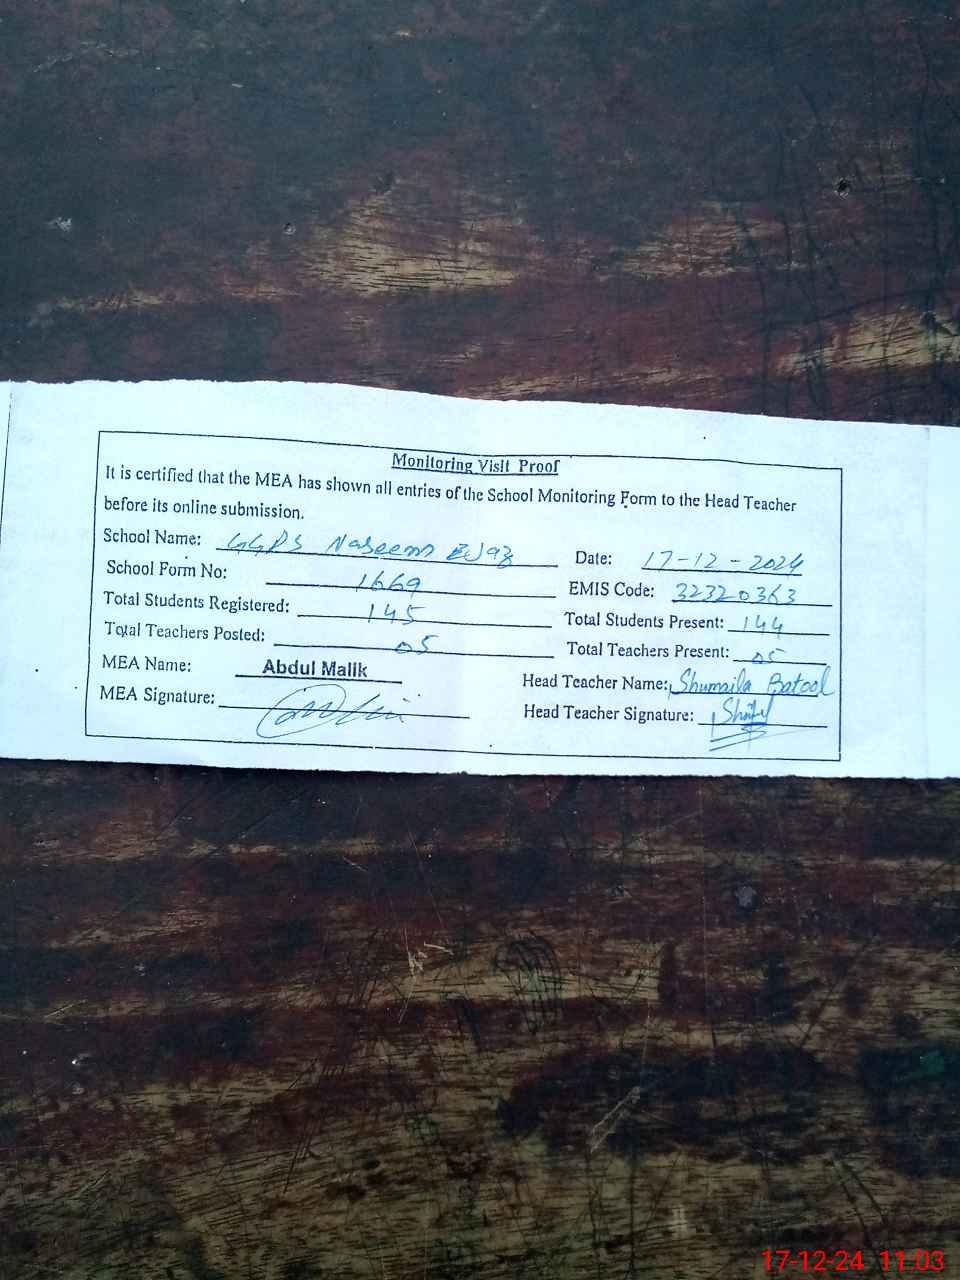 Monitoring Visit Proof
It is certified that the MEA has shown all entries of the School Monitoring Form to the Head Teacher
before its online submission.
School Name: GGPS Naseem Ejaz Date: 17-12-2024
School Form No: 1669 EMIS Code: 32320363
Total Students Registered: 145 Total Students Present: 144
Total Teachers Posted: 05 Total Teachers Present: 05
MEA Name: Abdul Malik Head Teacher Name: Shumaila Batool
MEA Signature: Head Teacher Signature:
17-12-24 11:03